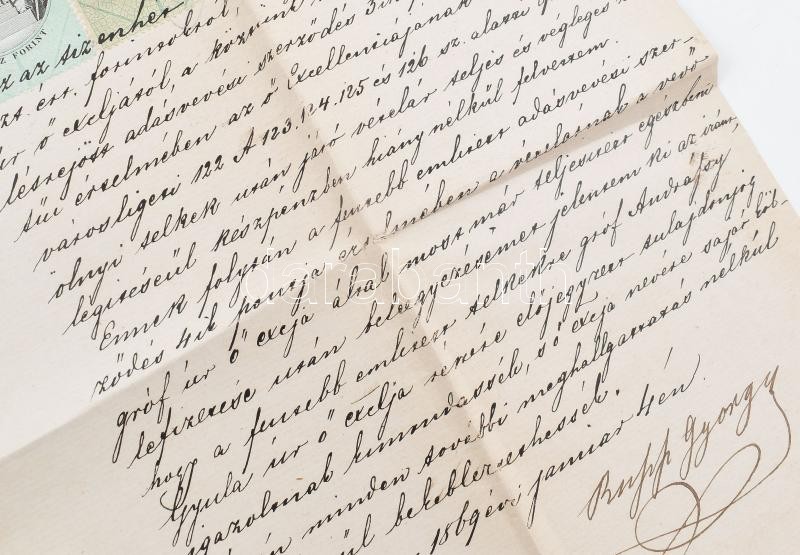 Z FORINT
z az tizenhét
zt ért. forintokról,
úr ő excljától, a között
lésrejött adásvevési szerződés 3ik
tűi érzelmében az ő Excellentiájának
városligeti 122 A 123.124.125 és 126 sz. alatti
ölnyi telkek után járó vételár teljes és végleges
legítéseül készpénzben hiány nélkül felvettem.
Ennek folytán a fentebb említett adásvevési szer-
ződés 4ik pontja értelmében a vételárnak a vevő
gróf úr ő exclja által most már teljesített egészbeni
lefizetése után beleegyezésemet jelentem ki az iránt,
hogy a fentebb említett telkekre gróf Andrássy
Gyula úr ő exclja részére előjegyzett tulajdonjog
igazoltnak kimondassék, s ő exclja nevére saját köl-
minden további meghallgattatás nélkül
bekebleztethessék.
1869 évi január 4én.
Rupp György
darabanth